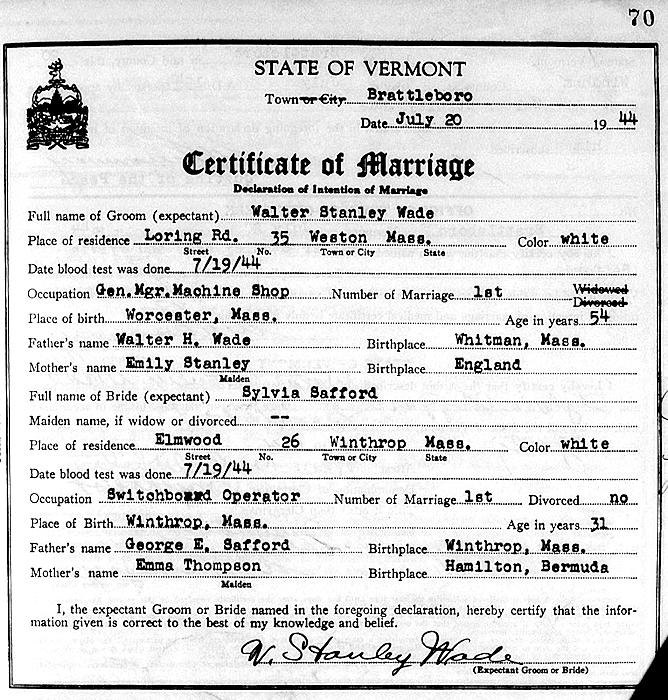 70
STATE OF VERMONT
Town or City Brattleboro
Date July 20 1944
Certificate of Marriage
Declaration of Intention of Marriage
Full name of Groom (expectant) Walter Stanley Wade
Place of residence Loring Rd. 35 Weston Mass. Color white
Street No. Town or City State
Date blood test was done 7/19/44
Occupation Gen.Mgr.Machine Shop Number of Marriage 1st Widowed
Divorced
Place of birth Worcester, Mass. Age in years 54
Father's name Walter H. Wade Birthplace Whitman, Mass.
Mother's name Emily Stanley Birthplace England
Maiden
Full name of Bride (expectant) Sylvia Safford
Maiden name, if widow or divorced --
Place of residence Elmwood 26 Winthrop Mass. Color white
Street No. Town or City State
Date blood test was done 7/19/44
Occupation Switchboard Operator Number of Marriage 1st Divorced no
Place of Birth Winthrop, Mass. Age in years 31
Father's name George E. Safford Birthplace Winthrop, Mass.
Mother's name Emma Thompson Birthplace Hamilton, Bermuda
Maiden
I, the expectant Groom or Bride named in the foregoing declaration, hereby certify that the infor-
mation given is correct to the best of my knowledge and belief.
W. Stanley Wade
(Expectant Groom or Bride)